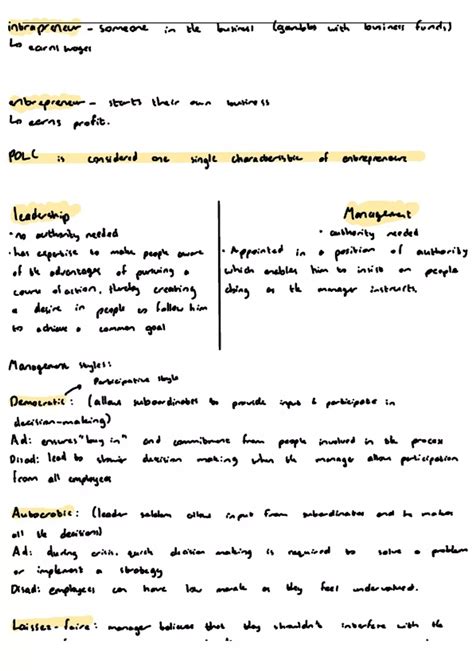 intrapreneur – someone in the business (gambles with business funds)
↳ earns wages
entrepreneur – starts their own business
↳ earns profit.
POLC is considered one single characteristic of entrepreneurs
leadership
• no authority needed
• has expertise to make people aware
of the advantages of pursuing a
course of action, thereby creating
a desire in people to follow him
to achieve a common goal
Management
• authority needed
• Appointed in a position of authority
which enables him to insist on people
doing as the manager instructs.
Management styles:
Participative style
Democratic: (allows subordinates to provide input & participate in
decision-making)
Ad: ensures "buy in" and commitment from people involved in the process
Disad: lead to slower decision making when the manager allows participation
from all employees
Autocratic: (leader seldom allows input from subordinates and he makes
all the decisions)
Ad: during crisis, quick decision making is required to solve a problem
or implement a strategy
Disad: employees can have low morale as they feel undervalued.
Laissez-faire: manager believes that they shouldn't interfere with the